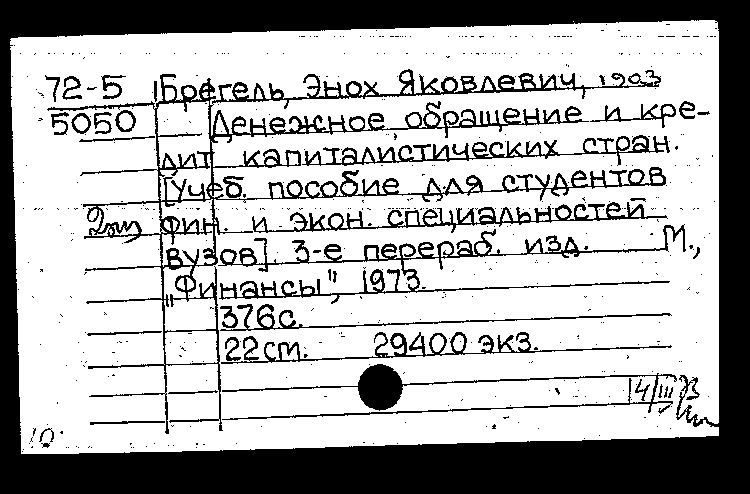 72-5 Брегель, Энох Яковлевич, 1903
5050 Денежное обращение и кре-
дит капиталистических стран.
[Учеб. пособие для студентов
фин. и экон. специальностей
вузов]. 3-е перераб. изд. М.,
"Финансы", 1973.
376с.
22см. 29400 экз.
14/III 73
10